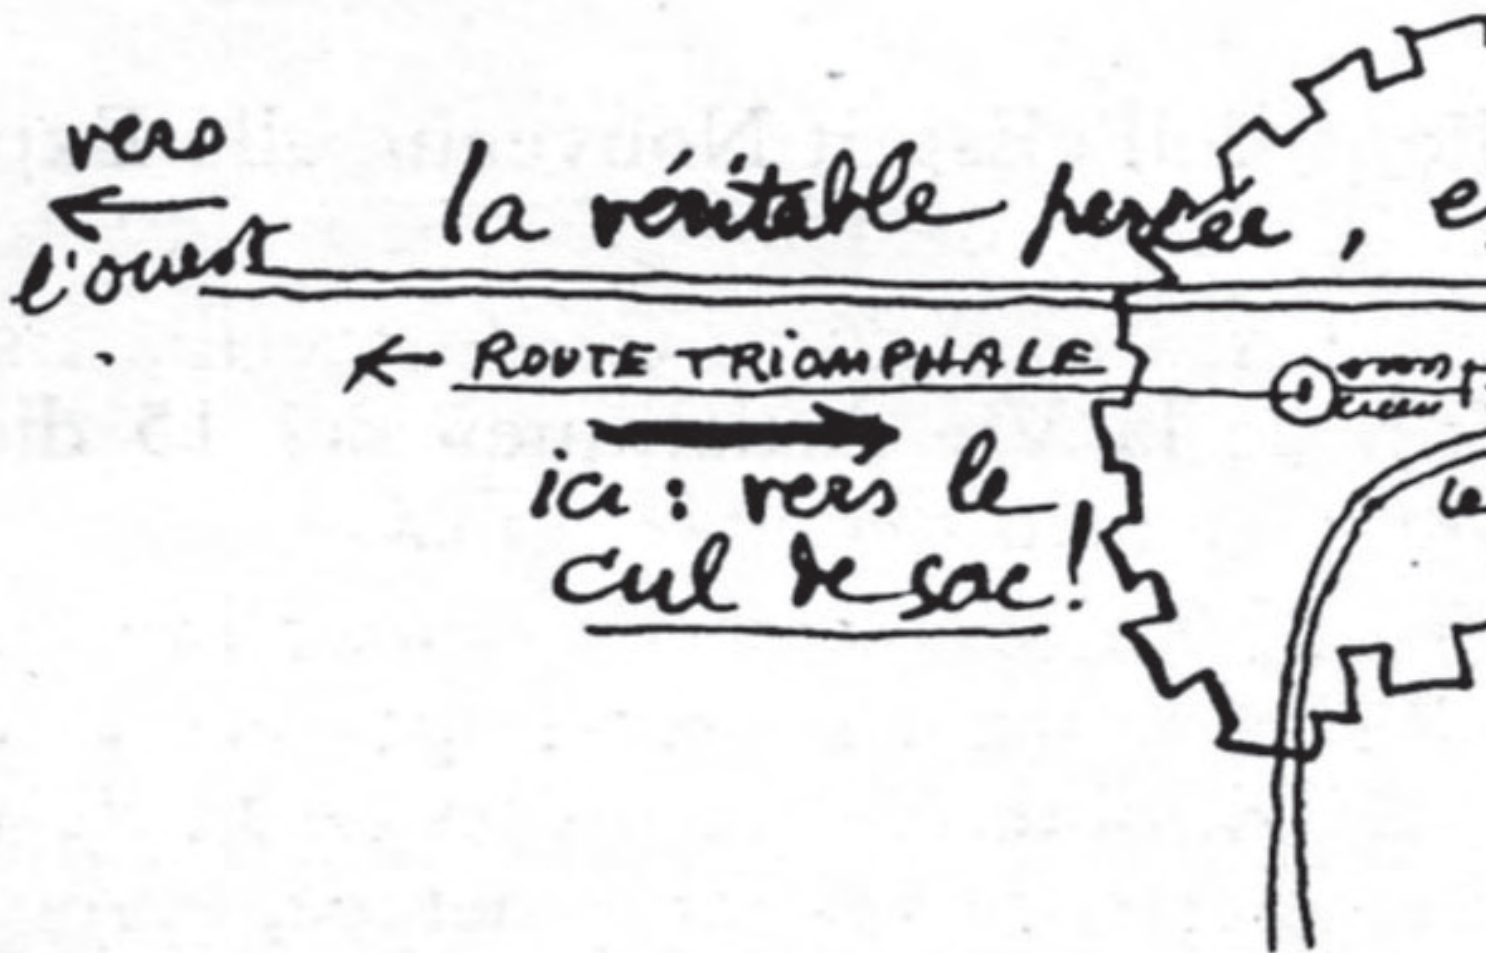 vers
l'ouest
la véritable percée,
ROUTE TRIOMPHALE
ici : vers le
cul de sac !